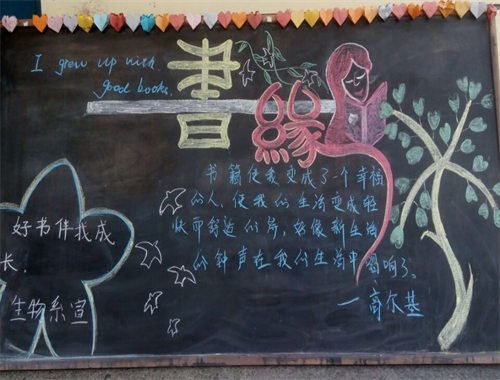 I grew up with
good books.
書緣
书籍使我变成了一个幸福
的人，使我的生活变成轻
快而舒适的诗，好像新生活
的钟声在我的生活中鸣响了。
—高尔基
好书伴我成
长.
生物系宣